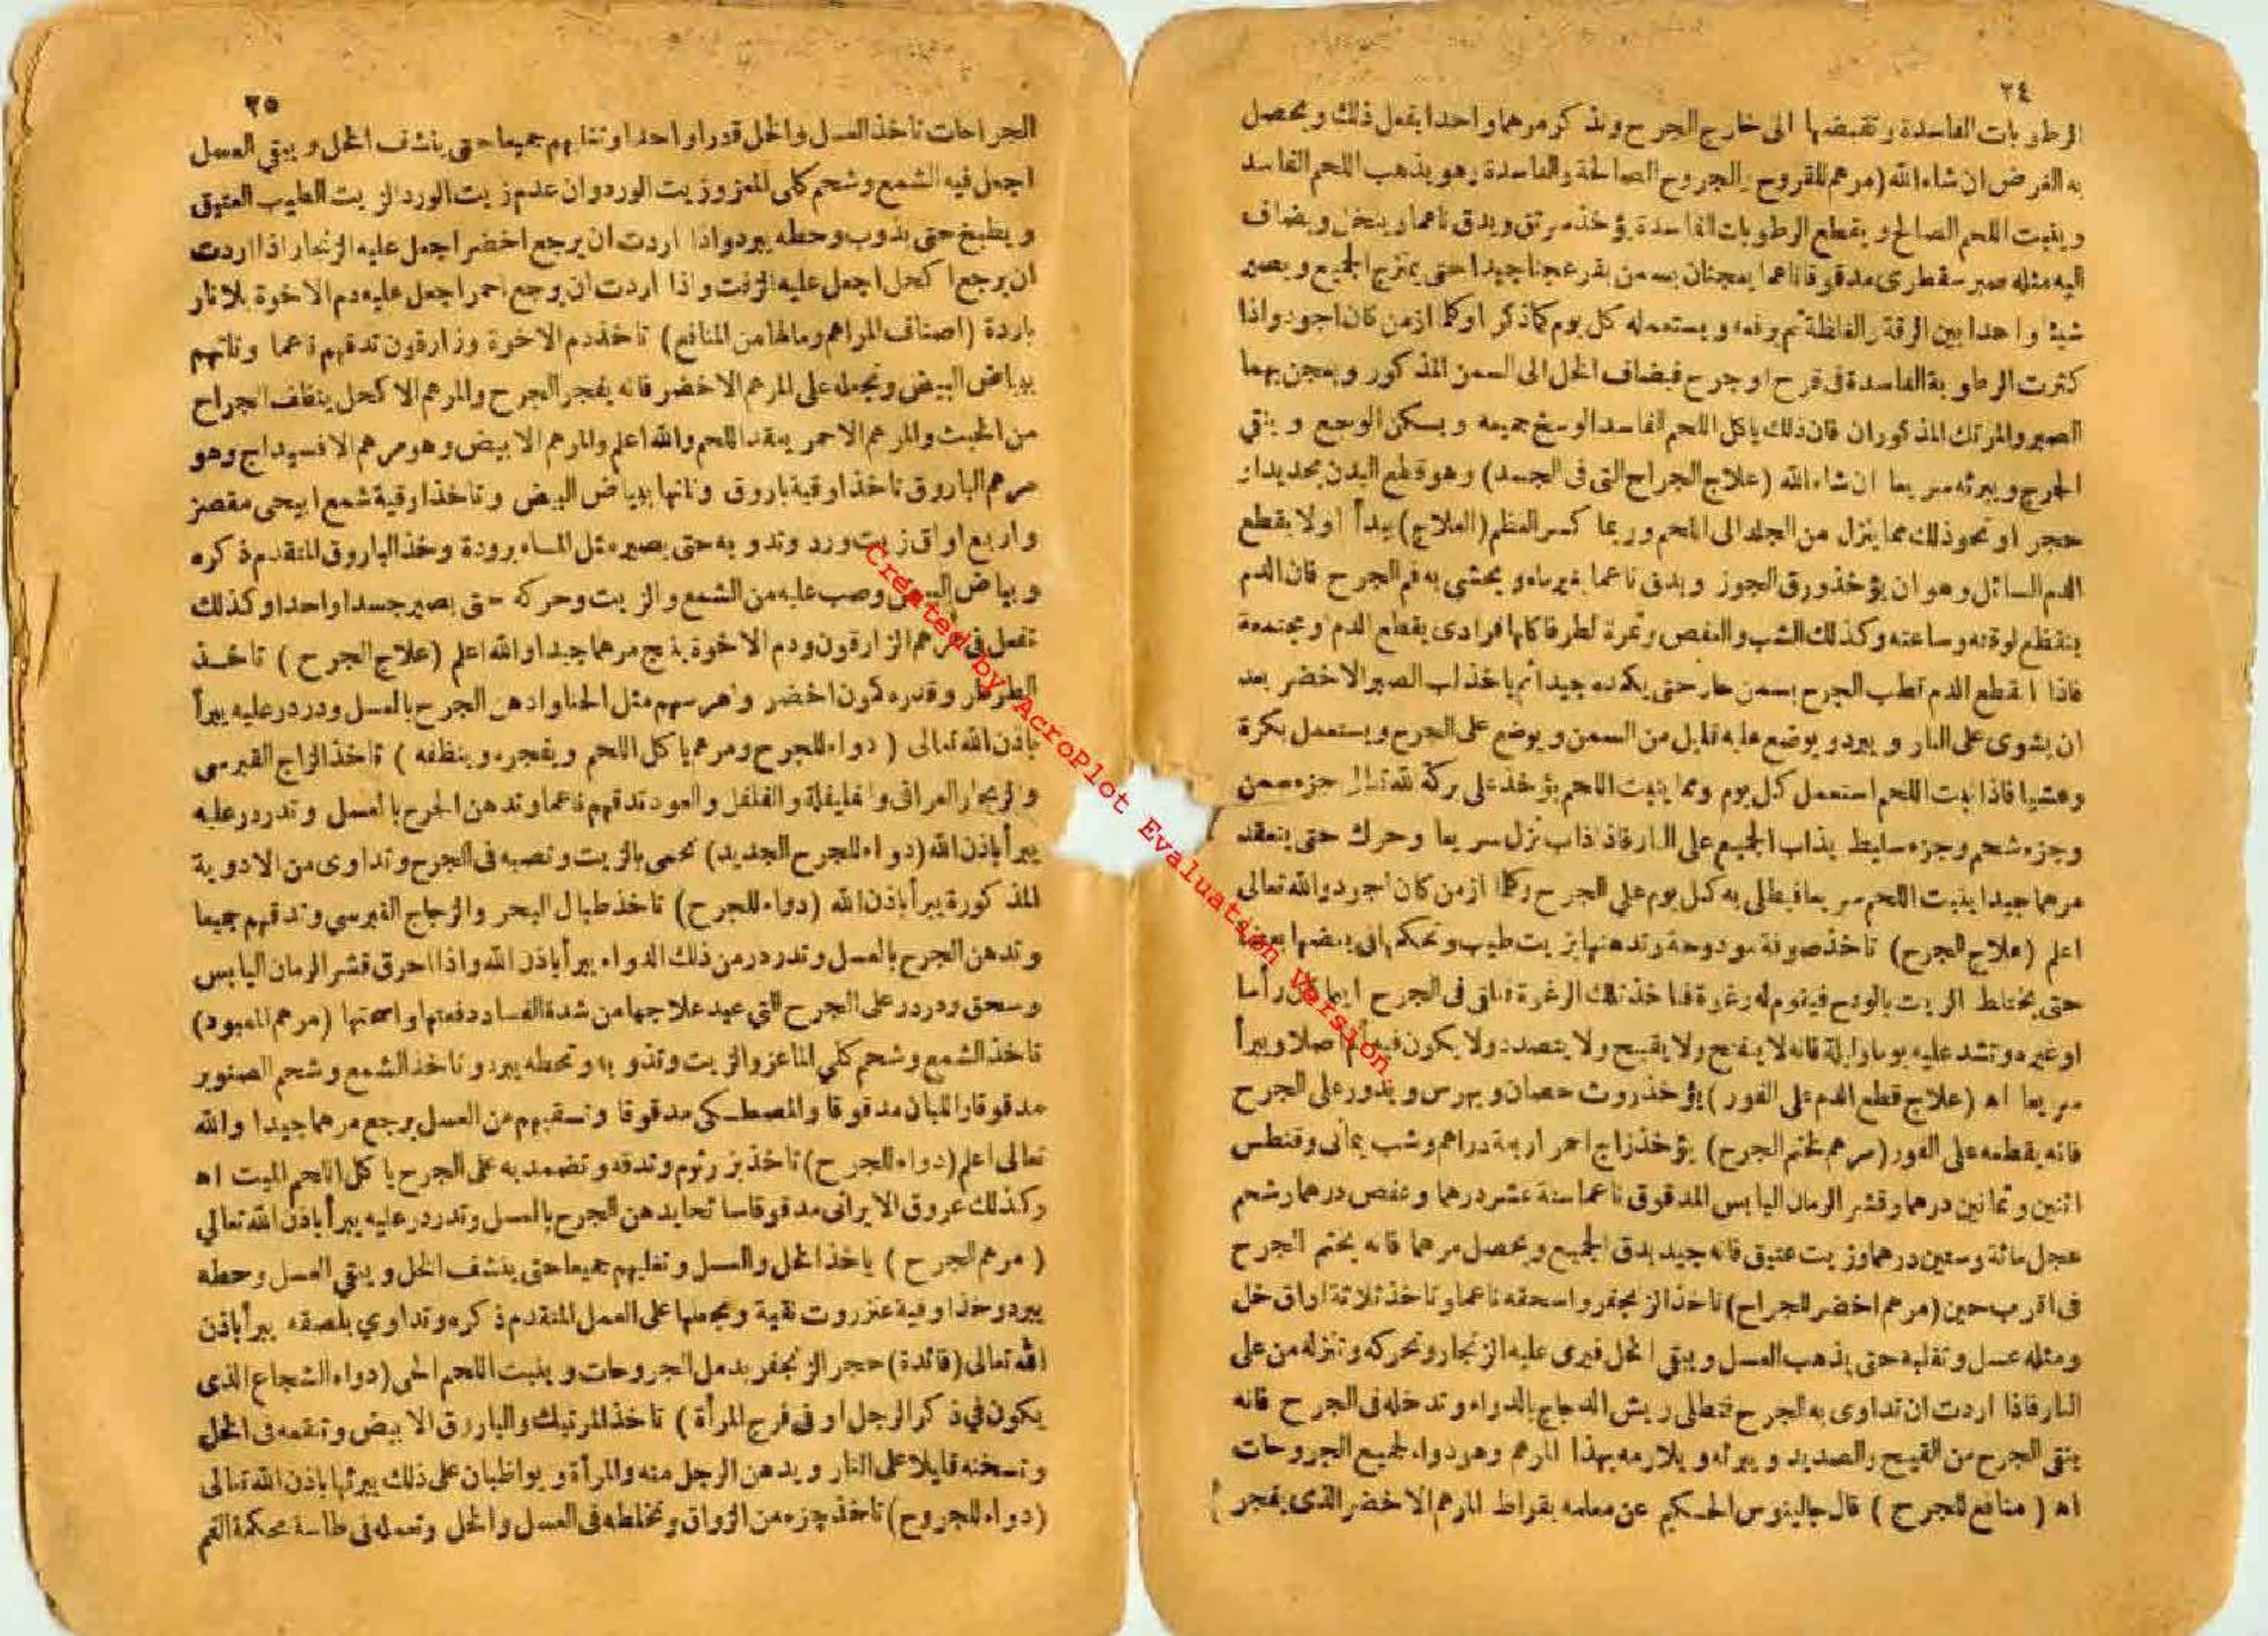 ٣٤
الرطوبات الفاسدة وتقبضها الى خارج الجرح ونذكر مرهما واحدا يفعل ذلك ويحصل
به الغرض ان شاء الله (مرهم للقروح والجروح الصالحة والفاسدة وهو يذهب اللحم الفاسد
وينبت اللحم الصالح ويقطع الرطوبات الفاسدة يؤخذ مرتق ويدق ناعما وينخل ويضاف
اليه مثله صبر سقطرى مدقوقا ناعما يعجنان بسمن بقر عجنا جيدا حتى يمتزج الجميع ويصير
شيئا واحدا بين الرقة والغلظة ثم يرفعه ويستعمله كل يوم كما ذكر او كلما ازمن كان اجود واذا
كثرت الرطوبة الفاسدة فى قرح او جرح فيضاف الخل الى السمن المذكور ويعجن بهما
الصبر والمرتك المذكوران فان ذلك ياكل اللحم الفاسد الوسخ جميعه ويسكن الوجع وينقي
الجرح ويبرئه سريعا ان شاء الله (علاج الجراح التى فى الجسد) وهو قطع البدن بحديد او
حجر او نحو ذلك مما ينزل من الجلد الى اللحم وربما كسر العظم (العلاج) يبدأ اولا بقطع
الدم السائل وهو ان يؤخذ ورق الجوز ويدق ناعما بغير ماء ويحشى به فم الجرح فان الدم
ينقطع لوقته وساعته وكذلك الشب والعفص وثمرة الطرفا كلها فرادى يقطع الدم
فاذا انقطع الدم تطب الجرح بسمن حار حتى يكمده جيدا ثم ياخذ لب الصبر الاخضر بعد
ان يشوى على النار ويبرد ويوضع عليه قليل من السمن ويوضع على الجرح ويستعمل بكرة
وعشيا فاذا نبت اللحم استعمل كل يوم ومما ينبت اللحم يؤخذ على بركة الله تعالى جزء سمن
وجزء شحم وجزء سليط يذاب الجميع على النار فاذا ذاب نزل سريعا وحرك حتى ينعقد
مرهما جيدا ينبت اللحم سريعا فيطلى به كل يوم على الجرح وكلما ازمن كان اجود والله تعالى
اعلم (علاج الجرح) تاخذ صوفة مودوحة وتدهنها بزيت طيب وتحكها الى بعضها بعضا
حتى يختلط الزيت بالودح فيقوم له رغرة فتاخذ تلك الرغرة فتلقى فى الجرح ايما كان رأسا
او غيره وتشد عليه يوما وليلة فانه لا ينفتح ولا يقيح ولا يتصدد ولا يكون فيه الم اصلا ويبرأ
سريعا اه (علاج قطع الدم على الفور) يؤخذ روث حصان ويهرس ويذرر على الجرح
فانه يقطعه على الفور (مرهم لختم الجرح) يؤخذ زاج احمر اربعة دراهم وشب يمانى وقنطس
اثنين وثمانين درهما وقشر الرمان اليابس المدقوق ناعما ستة عشر درهما وعفص درهما وشحم
عجل مائة وستين درهما وزيت عتيق فانه جيد يدق الجميع ويحصل مرهما فانه يختم الجرح
فى اقرب حين (مرهم اخضر للجراح) تاخذ الزنجفر واسحقه ناعما وتاخذ ثلاثة اواق خل
ومثله عسل وتغليه حتى يذهب العسل ويبقى الخل فيرى عليه الزنجار وتحركه وتنزله من على
النار فاذا اردت ان تداوى به الجرح فتطلى ريش الدجاج بالدواء وتدخله فى الجرح فانه
ينقى الجرح من القيح والصديد ويبرئه ويلازمه بهذا المرهم وهو دواء لجميع الجروحات
اه (منافع للجرح) قال جالينوس الحكيم عن معلمه بقراط المرهم الاخضر الذى يفجر
٣٥
الجراحات تاخذ العسل والخل قدرا واحدا وتغليهم جميعا حتى ينشف الخل ويبقي العسل
اجعل فيه الشمع وشحم كلى المعز وزيت الورد وان عدم زيت الورد الزيت الطيب العتيق
ويطبخ حتى يذوب وحطه يبرد واذا اردت ان يرجع اخضر اجعل عليه الزنجار اذا اردت
ان يرجع اكحل اجعل عليه الزفت واذا اردت ان يرجع احمر اجعل عليه دم الاخوة بلا نار
باردة (اصناف المراهم ومالها من المنافع) تاخذ دم الاخوة وزارقون تدقهم ناعما وتلتهم
ببياض البيض وتجعله على المرهم الاخضر فانه يفجر الجرح والمرهم الاكحل ينظف الجراح
من الخبث والمرهم الاحمر يعقد اللحم والله اعلم والمرهم الابيض وهو مرهم الافسيداج وهو
مرهم الباروق تاخذ اوقية باروق وتلتها ببياض البيض وتاخذ اوقية شمع ابيحى مقصر
واربع اواق زيت ورد وتذوبه حتى يصير مثل الماء برودة وخذ الباروق المتقدم ذكره
وبياض البيض وصب عليه من الشمع والزيت وحركه حتى يصير جسدا واحدا وكذلك
تفعل فى مرهم الزارقون ودم الاخوة ينتج مرهما جيدا والله اعلم (علاج الجرح) تاخذ
الطرطار وقدره كمون اخضر واهرسهم مثل الحنا وادهن الجرح بالعسل ودردر عليه يبرأ
باذن الله تعالى (دواء للجرح ومرهم ياكل اللحم ويفجره وينظفه) تاخذ الزاج القبرسى
والزنجار العراقى والفليفلة والفلفل والعود تدقهم ناعما وتدهن الجرح بالعسل وتدردر عليه
يبرأ باذن الله (دواء للجرح الجديد) تحمى بالزيت وتصبه فى الجرح وتداوى من الادوية
المذكورة يبرأ باذن الله (دواء للجرح) تاخذ طبال البحر والزجاج القبرسي وتدقهم جميعا
وتدهن الجرح بالعسل وتدردر من ذلك الدواء يبرأ باذن الله واذا احرق قشر الرمان اليابس
وسحق ودردر على الجرح التي عيد علاجها من شدة الفساد دفعتها واصحتها (مرهم المعبود)
تاخذ الشمع وشحم كلي الماعز والزيت وتذوبه وتحطه يبرد وتاخذ الشمع وشحم الصنوبر
مدقوقا واللبان مدقوقا والمصطكى مدقوقا وتسقيهم من العسل يرجع مرهما جيدا والله
تعالى اعلم (دواء للجرح) تاخذ بزر ثوم وتدقه وتضمد به على الجرح ياكل اللحم الميت اه
وكذلك عروق الايرانى مدقوقا يدهن الجرح بالعسل وتدردر عليه يبرأ باذن الله تعالي
(مرهم الجرح) ياخذ الخل والعسل وتغليهم جميعا حتى ينشف الخل ويبقي العسل وحطه
يبرد وخذ اوقية عنزروت نقية وتجعلها على العمل المتقدم ذكره وتداوي بلصقه يبرأ باذن
الله تعالى (فائدة) حجر الزنجفر يدمل الجروحات وينبت اللحم الحى (دواء الشجاع الذى
يكون في ذكر الرجل او فى فرج المرأة) تاخذ المرتيك والباروق الابيض وتنقعه فى الخل
وتسخنه قليلا على النار ويدهن الرجل منه والمرأة ويواظبان على ذلك يبرئها باذن الله تعالى
(دواء للجروح) تاخذ جزء من الزواق وتخلطه فى العسل والخل وتعمله فى طاسة محكمة الفم
Created by AcroPlot Evaluation Version